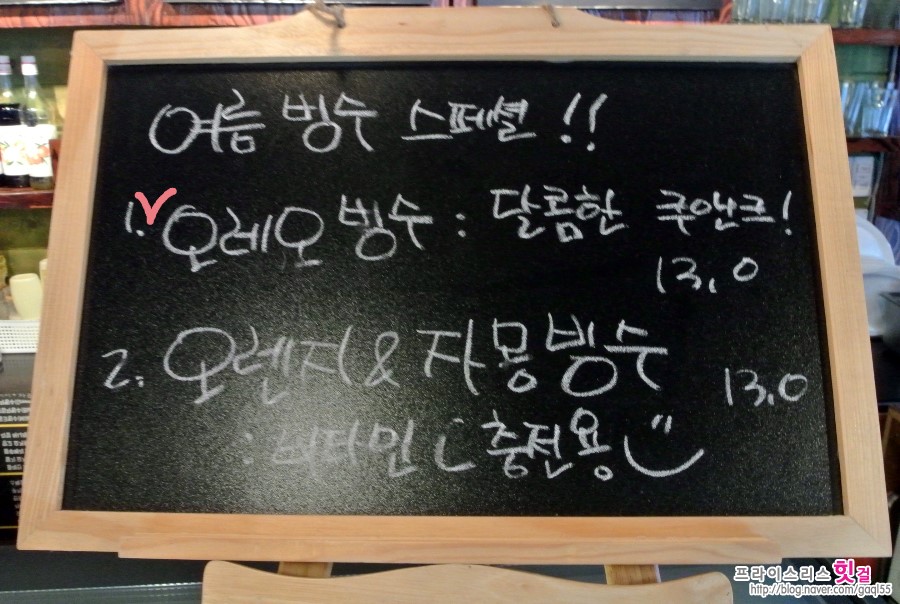 여름 빙수 스페셜 !!
1. 오레오 빙수 : 달콤한 쿠앤크!
13.0
2. 오렌지 & 자몽빙수
13.0
: 비타민 충전용
프라이스리스 힛걸
http://blog.naver.com/gaql55